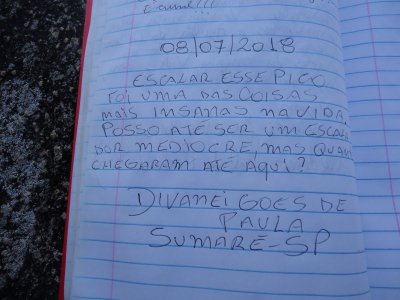 08/07/2018
ESCALAR ESSE PICO
FOI UMA DAS COISAS
MAIS INSANAS NA VIDA,
POSSO ATÉ SER UM ESCALA
DOR MEDIOCRE, MAS QUANTOS
CHEGARAM ATÉ AQUI?
DIVANEI GOES DE
PAULA
SUMARÉ-SP